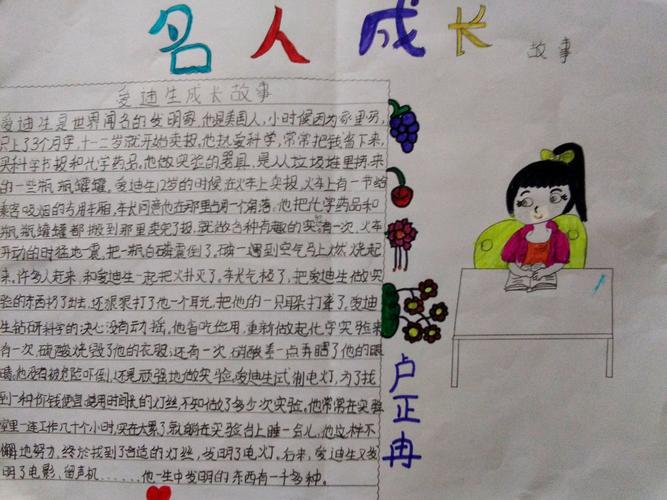 名人成长
故事
爱迪生成长故事
爱迪生是世界闻名的发明家,他是美国人,小时候因为家里穷,
只上了3个月学,十二岁就开始卖报,他热爱科学,常常把钱省下来,
买科学书报和化学药品,他做实验的器具,是从垃圾堆里捡来
的一些瓶瓶罐罐。爱迪生12岁的时候在火车上卖报,火车上有一节给
乘客吸烟的专用车厢,车长同意他在那里占用一个角落,他把化学药品和
瓶瓶罐罐都搬到那里卖完了报,就做各种有趣的实验一次,火车
开动的时猛地一震,把一瓶白磷震倒了。磷一遇到空气马上燃烧起
来,许多人赶来,和爱迪生一起把火扑灭了。车长气极了,把爱迪生做实
验的东西扔了出去,还狠狠打了他一个耳光,把他的一只耳朵打聋了。爱迪
生钻研科学的决心没有动摇,他省吃俭用,重新做起化学实验来
有一次,硫酸烧毁了他的衣服,还有一次,硝酸差一点弄瞎了他的眼
睛,他没有被危险吓倒,还是顽强地做实验。爱迪生试制电灯,为了找
到一种价钱便宜,使用时间长的灯丝,不知做了多少次实验。他常常在实验
室里一连工作几十个小时,实在太累了,就躺在实验台上睡一会儿,他这样不
懈地努力,终於找到了合适的灯丝,发明了电灯,后来,爱迪生又发
明了电影、留声机......,他一生中发明的东西有一千多种。
卢正冉